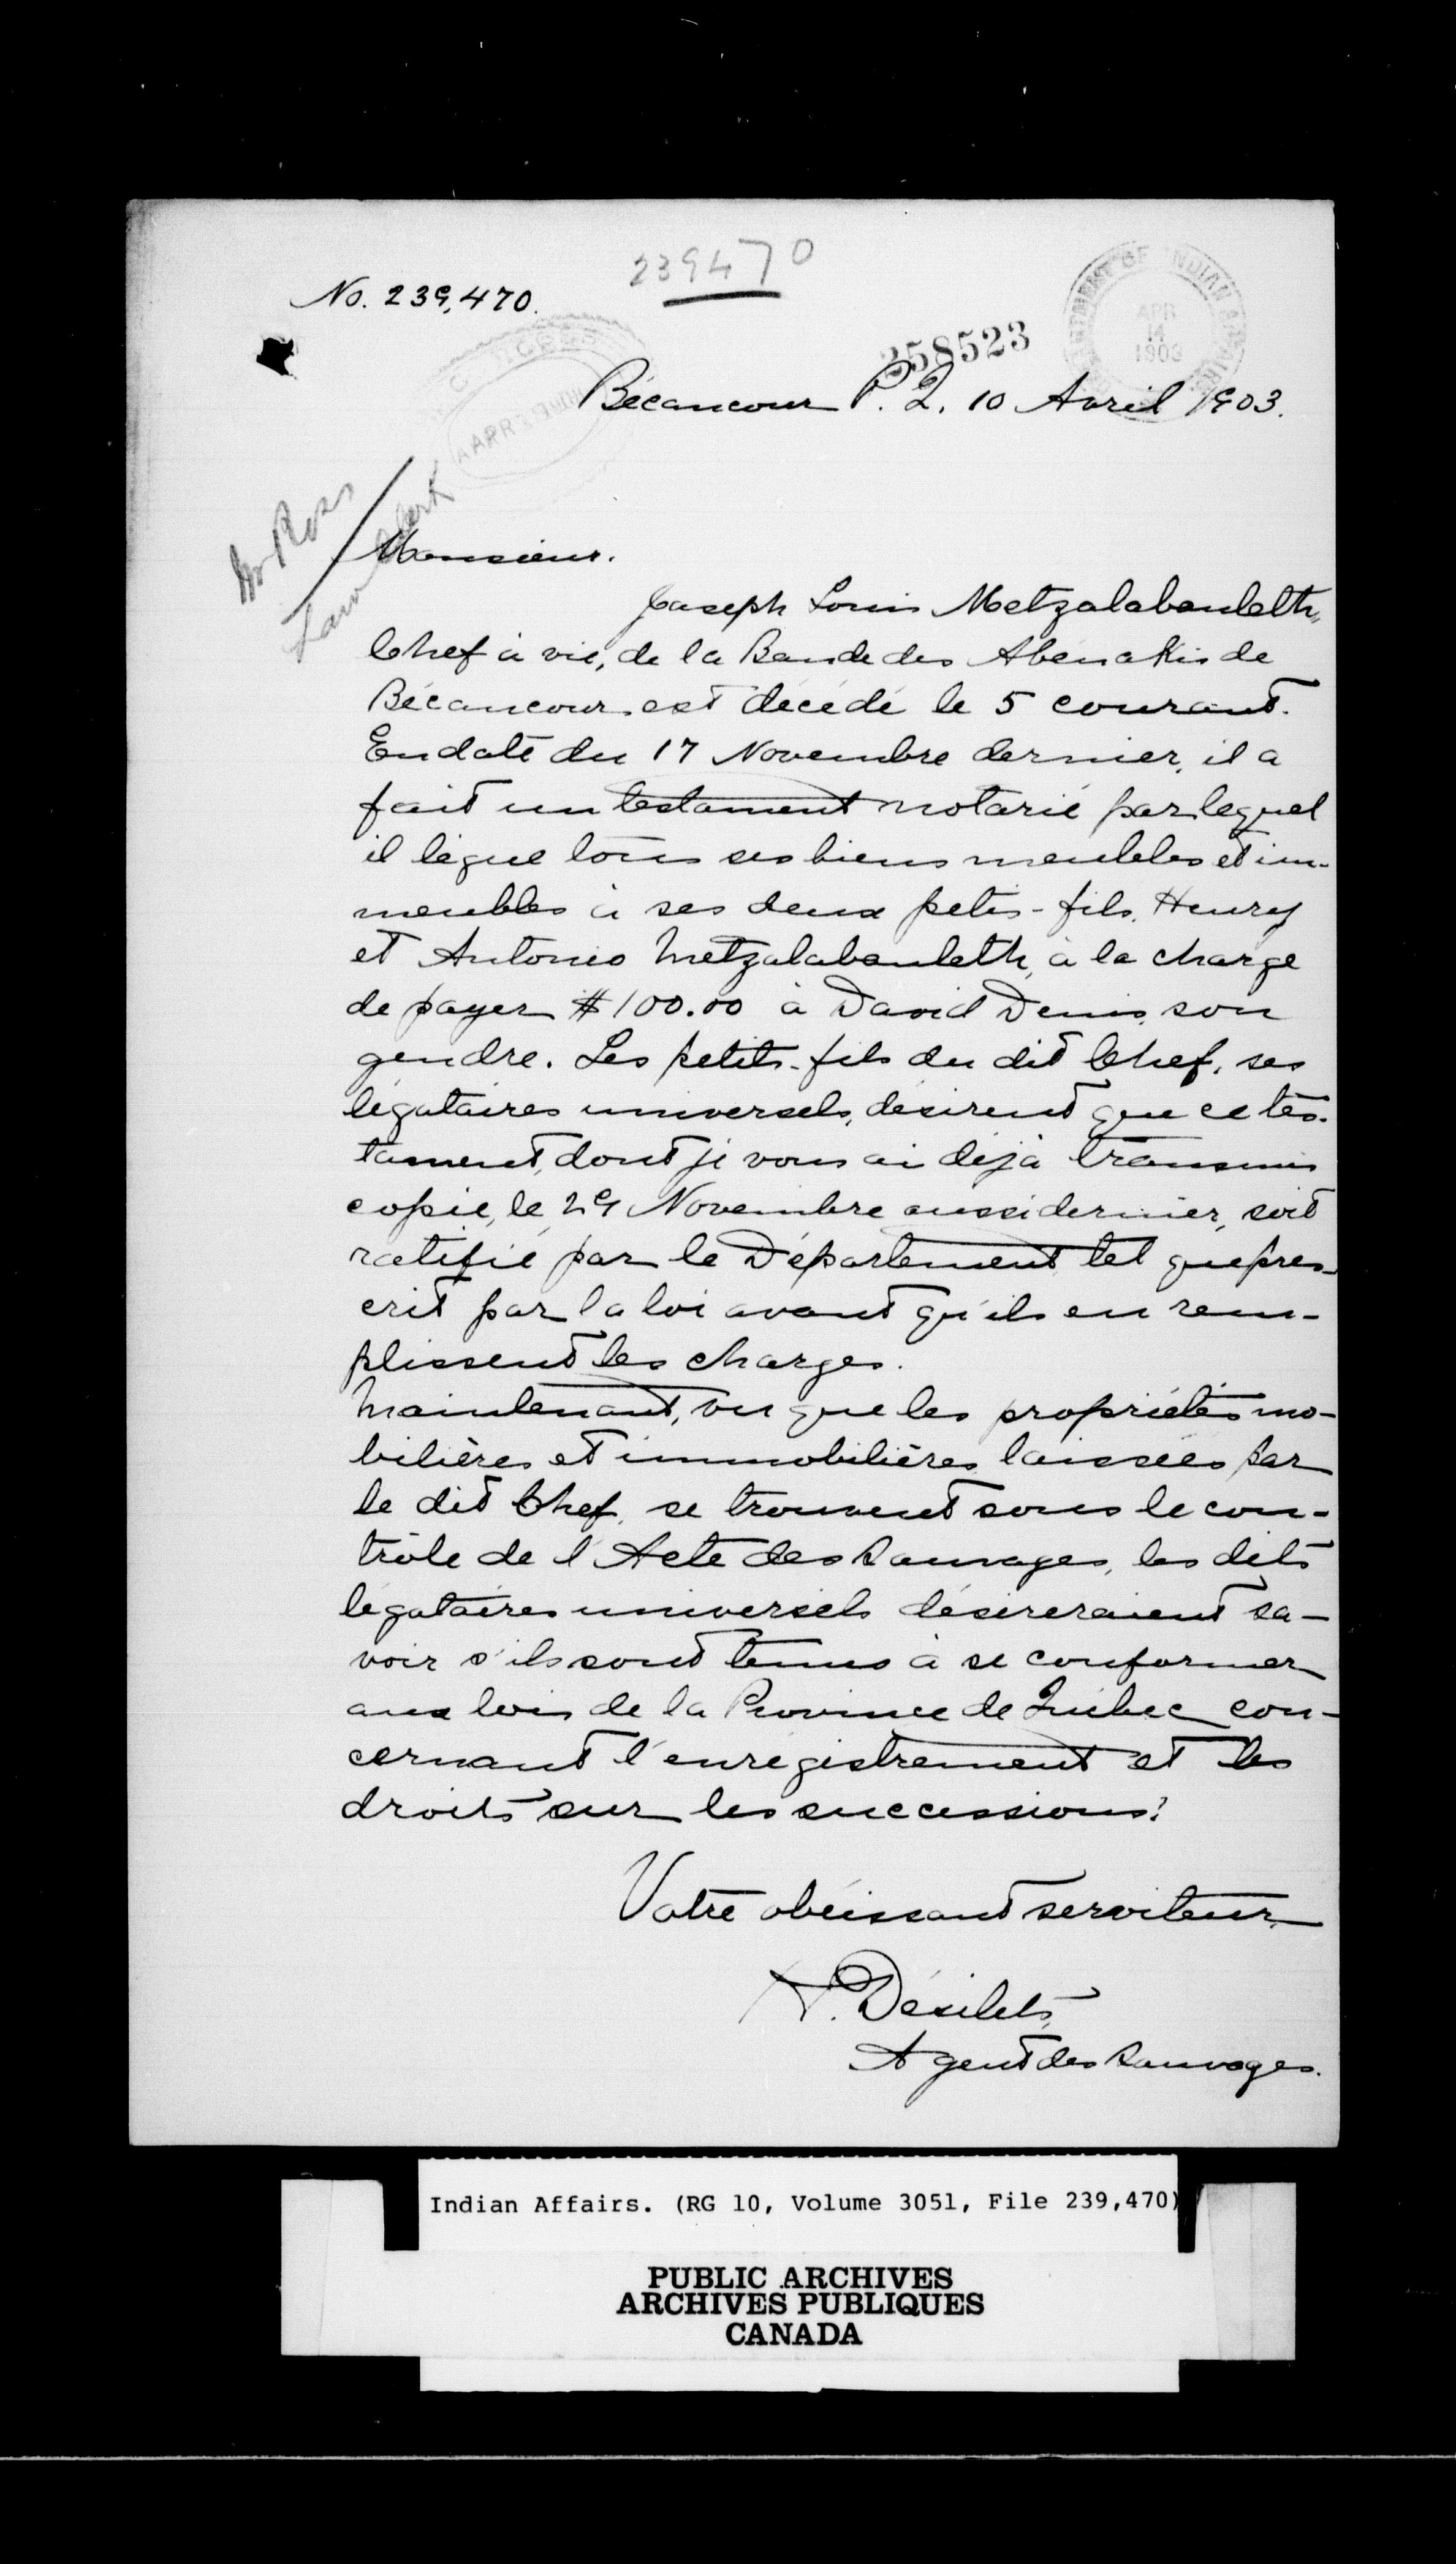 239470
No. 239,470.
DEPARTMENT OF INDIAN AFFAIRS
APR
14
1903
258523
Bécancour P. Q. 10 Avril 1903.
Mr Ross
Law Clerk
Monsieur.
Joseph Louis Metzalabanleth,
Chef à vie, de la Bande des Abénakis de
Bécancour est décédé le 5 courant.
En date du 17 Novembre dernier, il a
fait un testament notarié par lequel
il lègue tous ses biens meubles et im-
meubles à ses deux petis-fils, Henry
et Antonio Metzalabanleth, à la charge
de payer $100.00 à David Denis, son
gendre. Les petits-fils du dit Chef, ses
légataires universels, désirent que ce tes-
tament, dont je vous ai déjà transmis
copie, le 29 Novembre aussi dernier, soit
ratifié par le Département tel que pres-
crit par la loi avant qu'ils en rem-
plissent les charges.
Maintenant, vu que les propriétés mo-
bilières et immobilières laissées par
le dit Chef, se trouvent sous le con-
trôle de l'Acte des Sauvages, les dits
légataires universels désireraient sa-
voir s'ils sont tenus à se conformer
aux lois de la Province de Québec con-
cernant l'enrégistrement et les
droits sur les successions?
Votre obéissant serviteur,
Désilets,
Agent des Sauvages.
Indian Affairs. (RG 10, Volume 3051, File 239,470)
PUBLIC ARCHIVES
ARCHIVES PUBLIQUES
CANADA